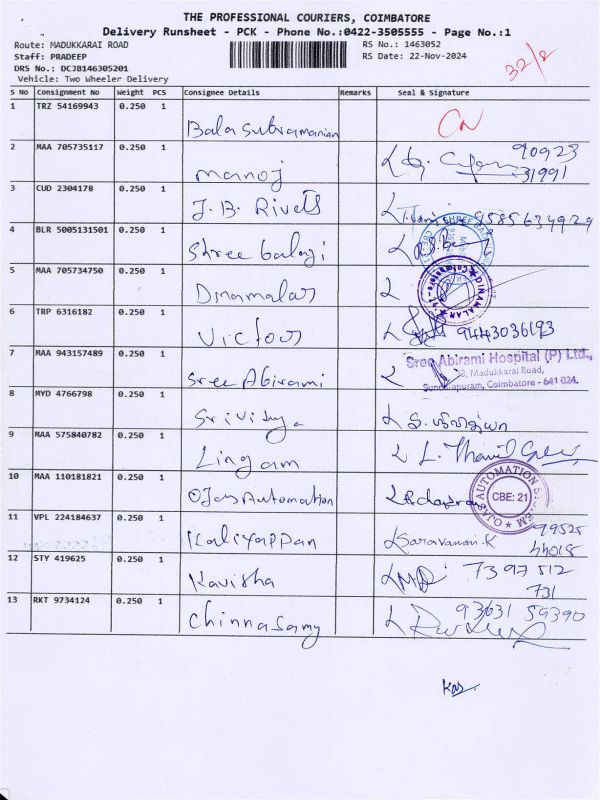 THE PROFESSIONAL COURIERS, COIMBATORE
Delivery Runsheet - PCK - Phone No.:0422-3505555 - Page No.:1
Route: MADUKKARAI ROAD RS No.: 1463052
Staff: PRADEEP RS Date: 22-Nov-2024
DRS No.: DCJB146305201
Vehicle: Two Wheeler Delivery
32/2
S No Consignment No Weight PCS Consignee Details Remarks Seal & Signature
1 TRZ 54169943 0.250 1 Balasubramanian CN
2 MAA 705735117 0.250 1 manoj 90923 31991
3 CUD 2304178 0.250 1 J.B. Rivets 9585634929
4 BLR 5005131501 0.250 1 Shree balaji
5 MAA 705734750 0.250 1 Dinamalar DINAMALAR
6 TRP 6316182 0.250 1 Victoor 9443036193
7 MAA 943157489 0.250 1 Sree Abirami
Sree Abirami Hospital (P) Ltd.,
Madukkarai Road,
Sundarapuram, Coimbatore - 641 024.
8 MYD 4766798 0.250 1 Srividya
9 MAA 575840782 0.250 1 Lingam
10 MAA 110181821 0.250 1 OJas Automation OJAS AUTOMATION SYSTEM CBE: 21
11 VPL 224184637 0.250 1 Kaliyappan Saravanan.K
12 STY 419625 0.250 1 Kavisha 7397512 731
13 RKT 9734124 0.250 1 Chinnasamy 93631 59390